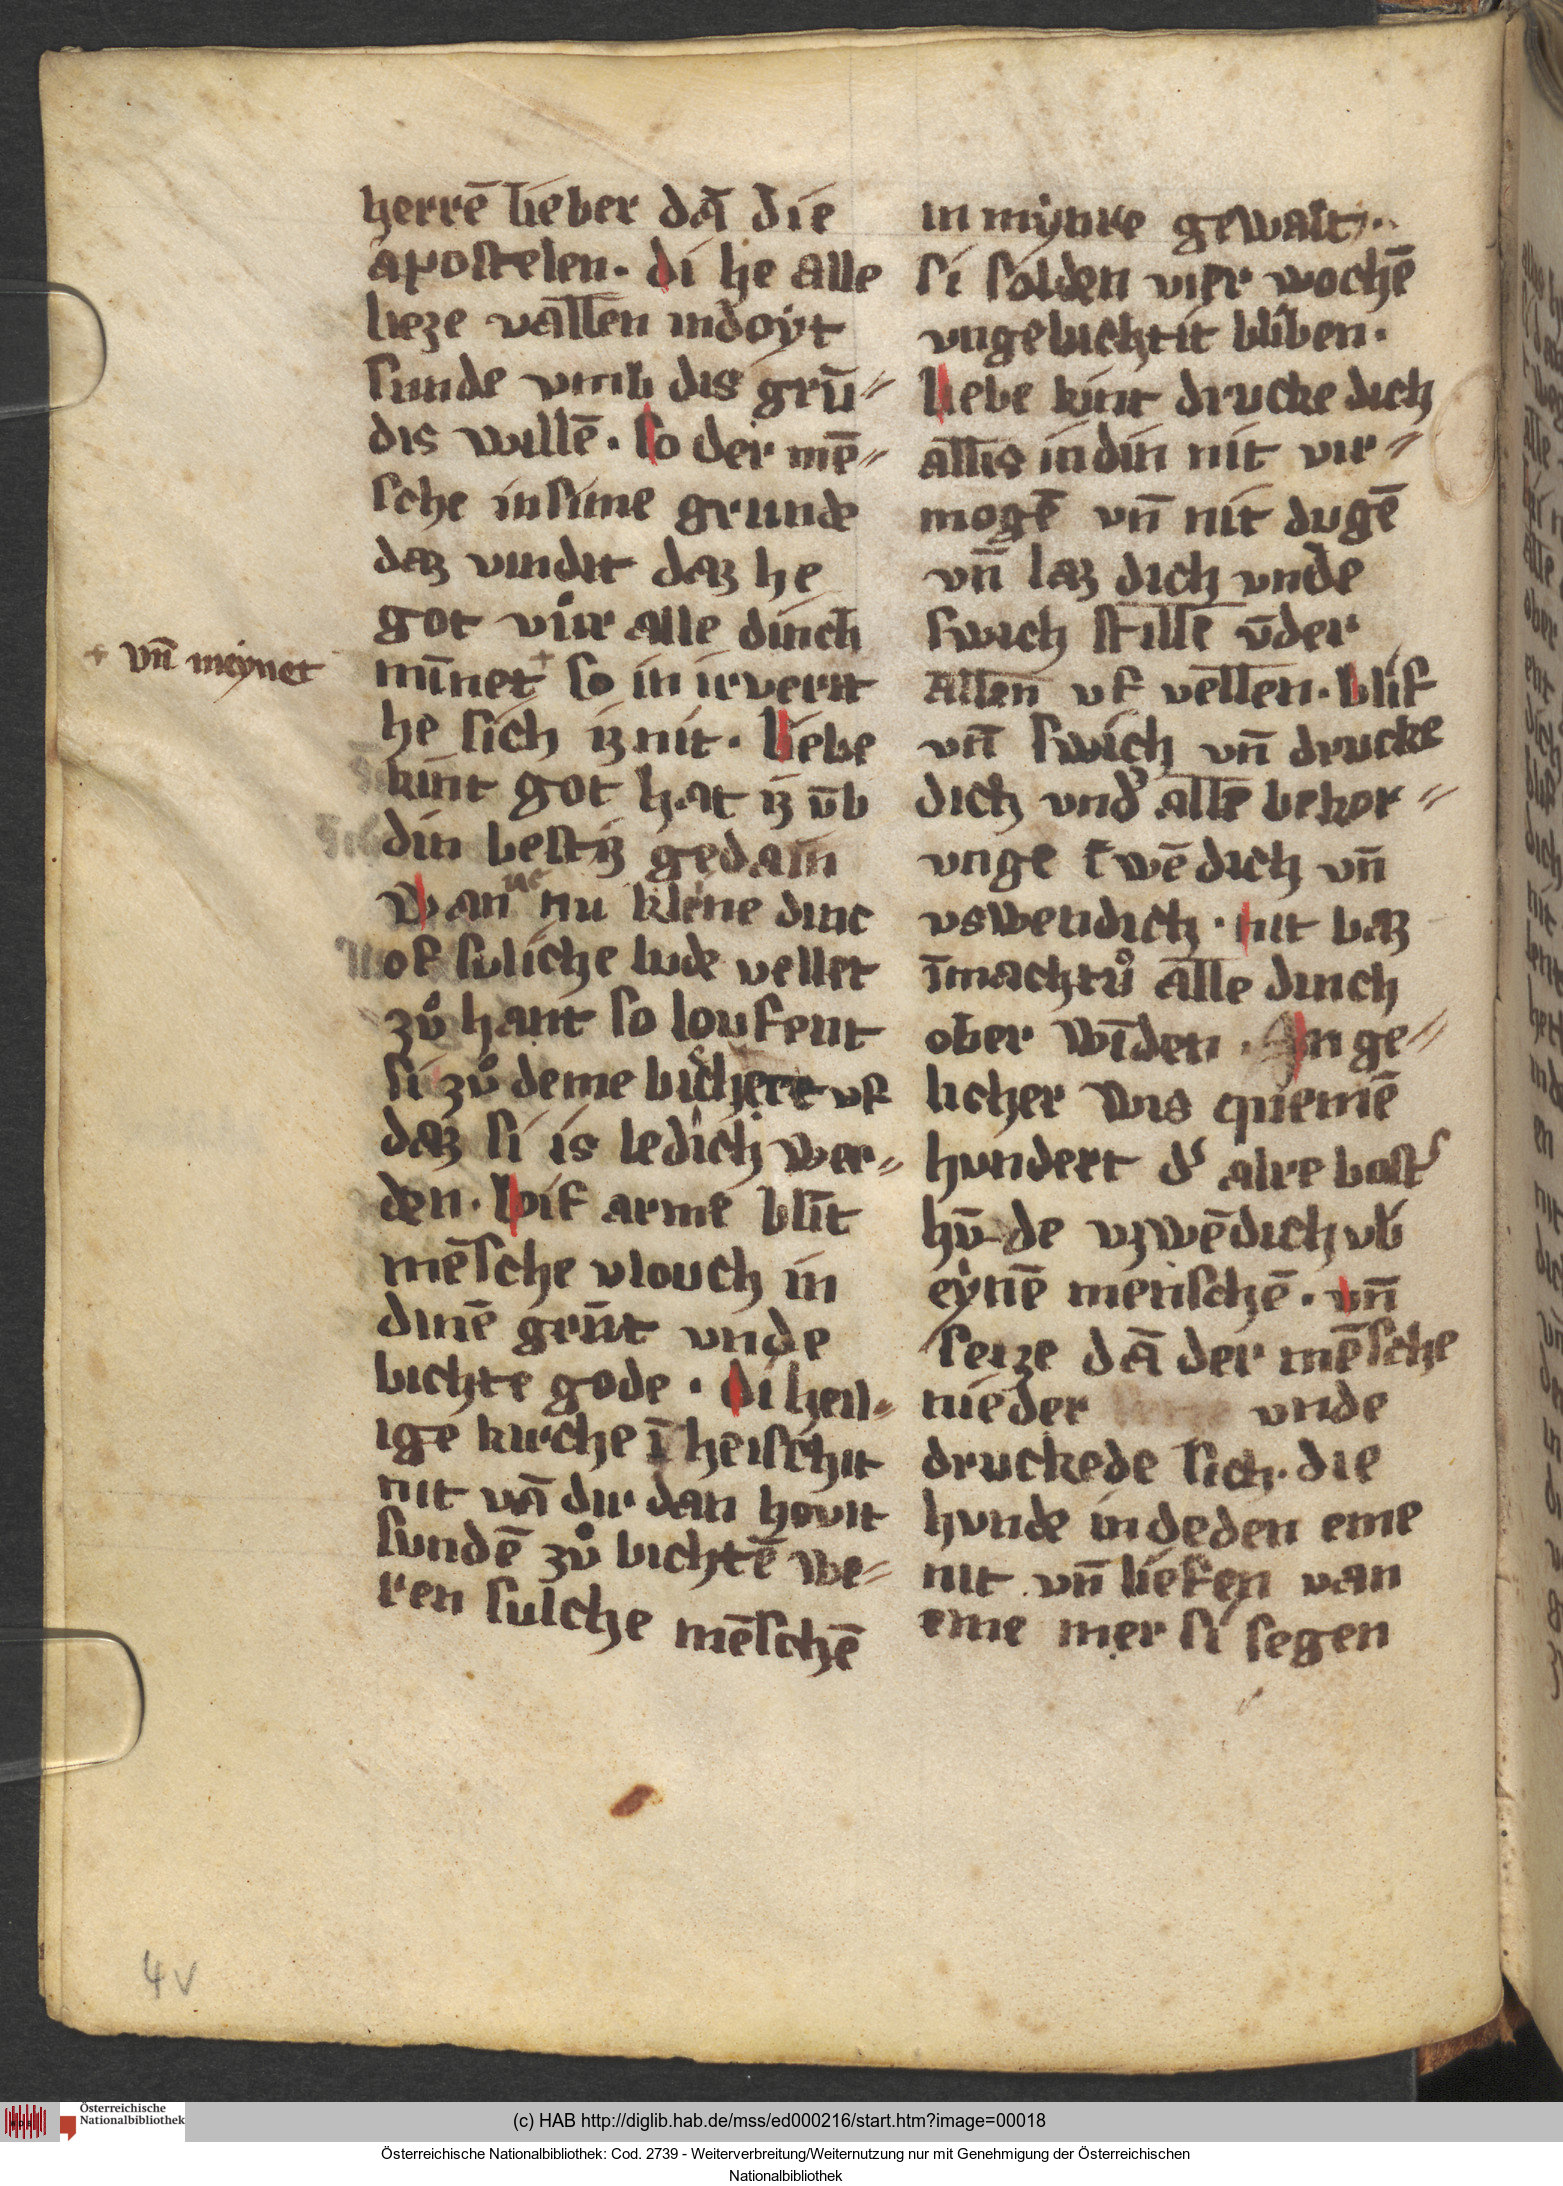 herrē lieber dā die
apostelen. di he alle
lieze vallen indoyt
sunde vmb dis grū=
dis willē. So der mē=
sche insime grunde
daz vindit daz he
got vůr alle dinch
+ vn̄ meynet
mīnet+ so in irverit
he sich iz nit. liebe
kint got hat iz v̄b
din bestiz gedain
Wan nu kleine dinc
of suliche lude vellet
zů hant so loufent
si zů deme bichtere vf
daz si is ledich wer=
den. loif arme blīt
mēsche vlouch in
dinē grūt vnde
bichte gode. di heil=
ige kirche ī heischit
nit vā dir dan hovit
sundē zů bichtē we=
ren sulche mēschē
in mynre gewalt.
si solden vier wochē
vngebichtit bliben.
liebe kint drucke dich
allis in din nit vir=
mogē vn̄ nit dugē
vn̄ laz dich vnde
swich stille v̄der
allen vf vellen. blif
vn̄ swich vn̄ drucke
dich vnd' alle bekor=
vnge īwēdich vn̄
vswendich. nit baz
īmachtů alle dinch
ober wīden. In ge=
licher wis quemē
hundert d' alre bost'
hū de vzwēdich vb'
eynē menschē. vn̄
seize dā der mēsche
nieder vnde
druckede sich. die
hunde in deden eme
nit vn̄ liefen van
eme mer si segen
4v
(c) HAB http://diglib.hab.de/mss/ed000216/start.htm?image=00018
Österreichische Nationalbibliothek
Österreichische Nationalbibliothek: Cod. 2739 - Weiterverbreitung/Weiternutzung nur mit Genehmigung der Österreichischen
Nationalbibliothek